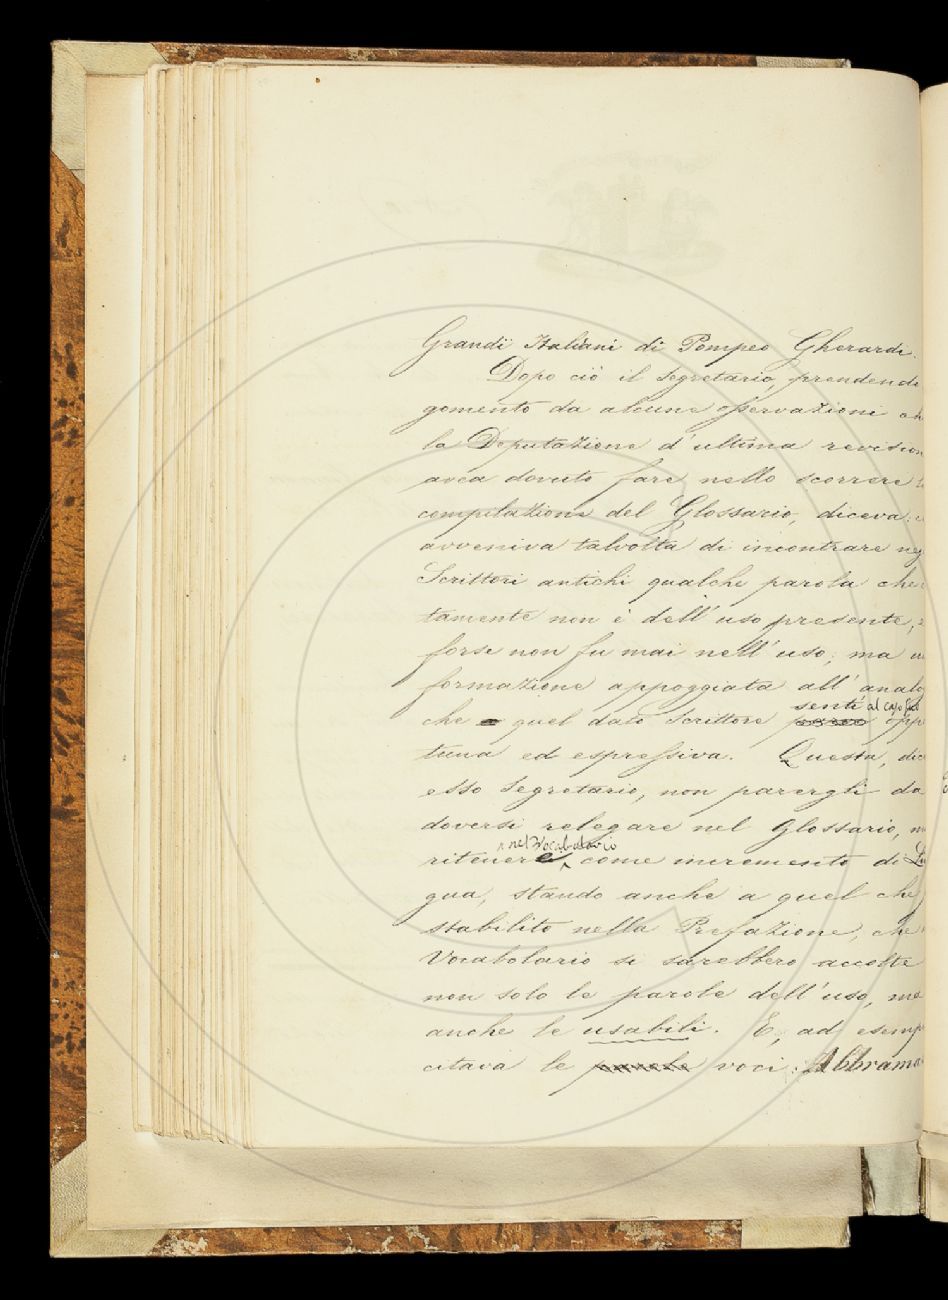 Grandi Italiani di Pompeo Gherardi.
Dopo ciò il segretario, prendend
gomento da alcune osservazioni ch
la Deputazione d'ultima revision
avea dovuto fare nello scorrere
compilazione del Glossario, diceva:
avveniva talvolta di incontrare neg
Scrittori antichi qualche parola che
tamente non è dell'uso presente,
forse non fu mai nell'uso; ma
formazione appoggiata all'analo
senti al capo suo
che quel dato Scrittore parve opp
tuna ed espressiva. Questa, dic
esso Segretario, non parergli da
doversi relegare nel Glossario, m
nel Vocabolario
ritenere come incremento di Lin
gua, stando anche a quel che
stabilito nella Prefazione, che
Vocabolario si sarebbero accolte
non solo le parole dell'uso, ma
anche le usabili. E, ad esemp
citava le parole voci: Abbrama